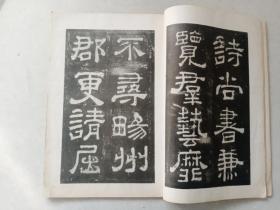 詩尚書兼
覽羣藝靡
不尋畼州
郡更請屈